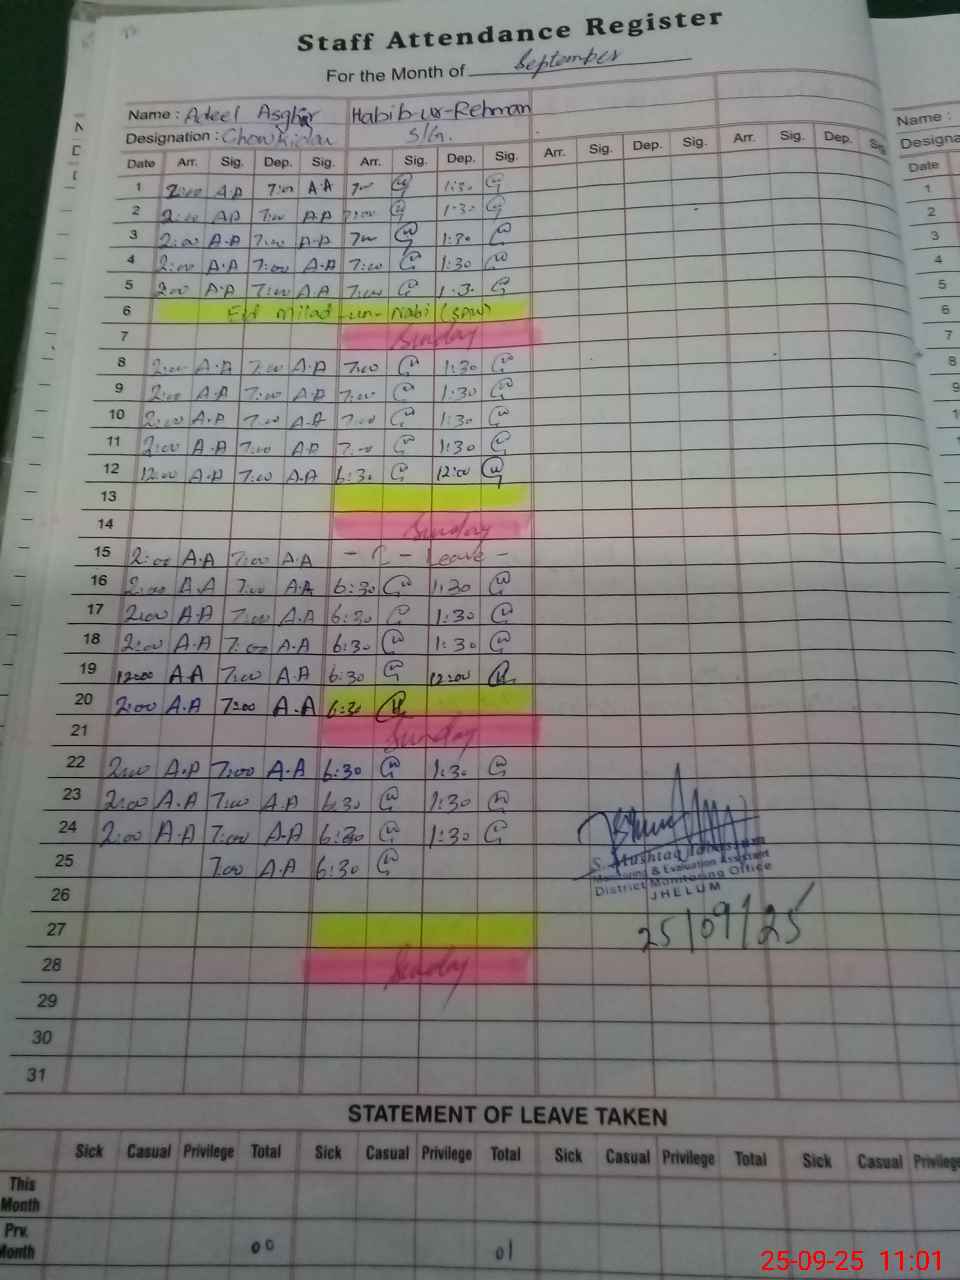 Staff Attendance Register
For the Month of September
Name : Adeel Asghar Habib-ur-Rehman
Designation : Chowkidar S/G.
Date Arr. Sig. Dep. Sig. Arr. Sig. Dep. Sig. Arr. Sig. Dep. Sig. Arr. Sig. Dep. Sig.
1 2:00 A.A 7:00 A.A 7:00 1:30
2 2:00 A.A 7:00 A.A 7:00 1:30
3 2:00 A.A 7:00 A.A 7:00 1:30
4 2:00 A.A 7:00 A.A 7:00 1:30
5 2:00 A.A 7:00 A.A 7:00 1:30
6 Eid Milad-un-Nabi (SAW)
7 Sunday
8 2:00 A.A 7:00 A.A 7:00 1:30
9 2:00 A.A 7:00 A.A 7:00 1:30
10 2:00 A.A 7:00 A.A 7:00 1:30
11 2:00 A.A 7:00 A.A 7:00 1:30
12 12:00 A.A 7:00 A.A 6:30 12:00
13
14 Sunday
15 2:00 A.A 7:00 A.A - C - Leave -
16 2:00 A.A 7:00 A.A 6:30 1:30
17 2:00 A.A 7:00 A.A 6:30 1:30
18 2:00 A.A 7:00 A.A 6:30 1:30
19 12:00 A.A 7:00 A.A 6:30 12:00
20 2:00 A.A 7:00 A.A 6:30
21 Sunday
22 2:00 A.A 7:00 A.A 6:30 1:30
23 2:00 A.A 7:00 A.A 6:30 1:30
24 2:00 A.A 7:00 A.A 6:30 1:30
25 7:00 A.A 6:30
26
27
28 Sunday
29
30
31
S. Mushtaq
Monitoring & Evaluation Assistant
District Monitoring Office
JHELUM
25/09/25
STATEMENT OF LEAVE TAKEN
Sick Casual Privilege Total Sick Casual Privilege Total Sick Casual Privilege Total Sick Casual Privilege
This Month
Prv. Month 00 01
Name :
Designa
Date
1
2
3
4
5
6
7
8
9
10
25-09-25 11:01